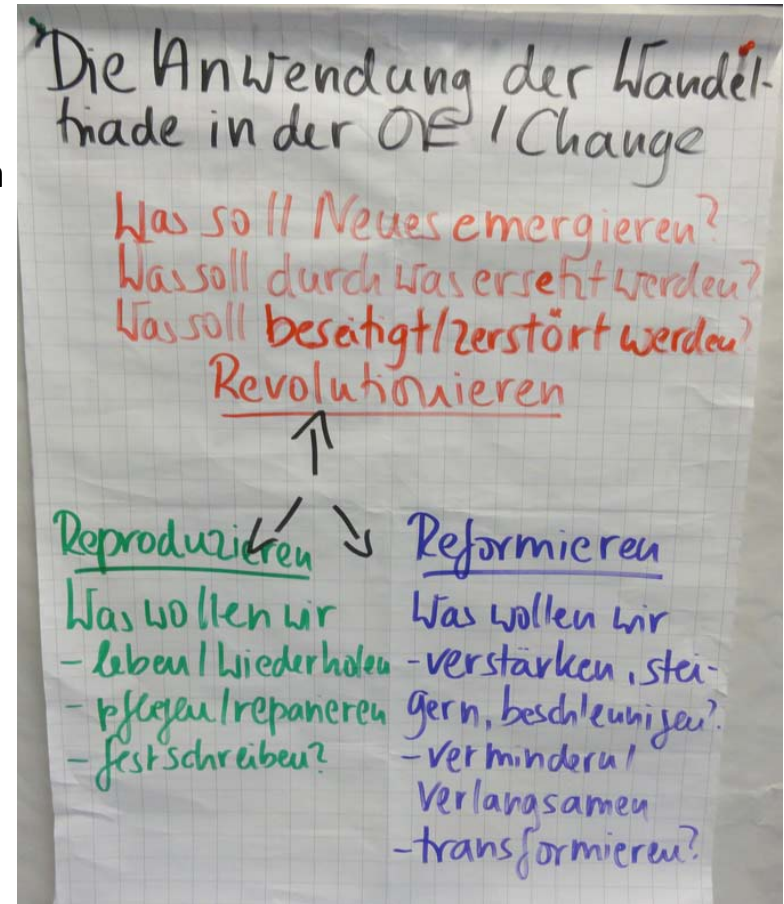 Die Anwendung der Wandel-
triade in der OE / Change
n
Was soll Neues emergieren?
Was soll durch was ersetzt werden?
Was soll beseitigt/zerstört werden?
Revolutionieren
Reproduzieren
Was wollen wir
- leben / wiederholen
- pflegen / reparieren
- festschreiben?
Reformieren
Was wollen wir
- verstärken, stei-
gern, beschleunigen?
- vermindern /
verlangsamen
- transformieren?